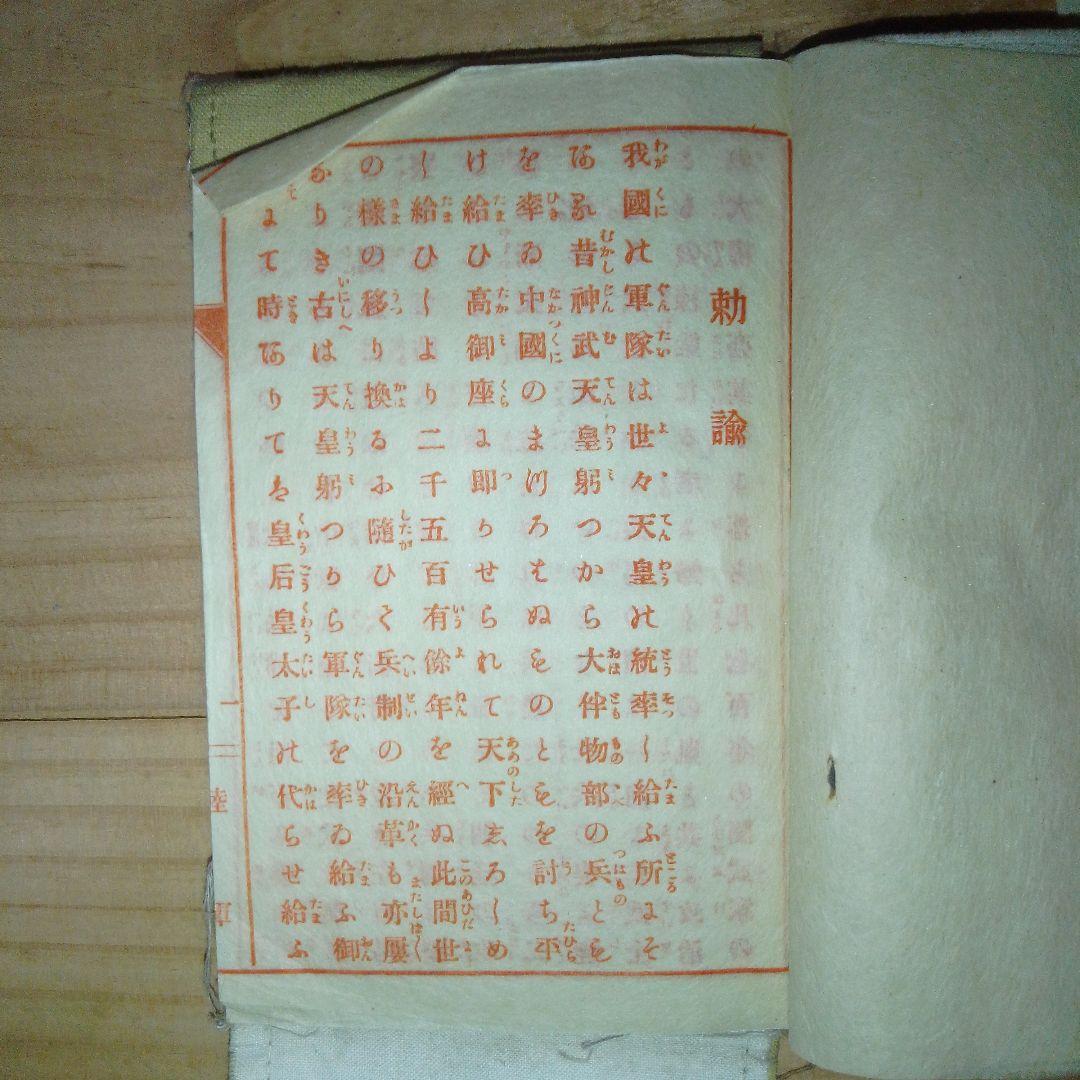 勅諭
我國の軍隊は世々天皇の統率し給ふ所にそ
ある昔神武天皇躬つから大伴物部の兵とも
を率ゐ中國のまつろはぬものともを討ち平
け給ひ高御座に即かせられて天下しろしめ
し給ひしより二千五百有餘年を經ぬ此間世
の樣の移り換るに隨ひて兵制の沿革も亦屢
なりき古は天皇躬つから軍隊を率ゐ給ふ御
にて時ありては皇后皇太子の代らせ給ふ
一
陸